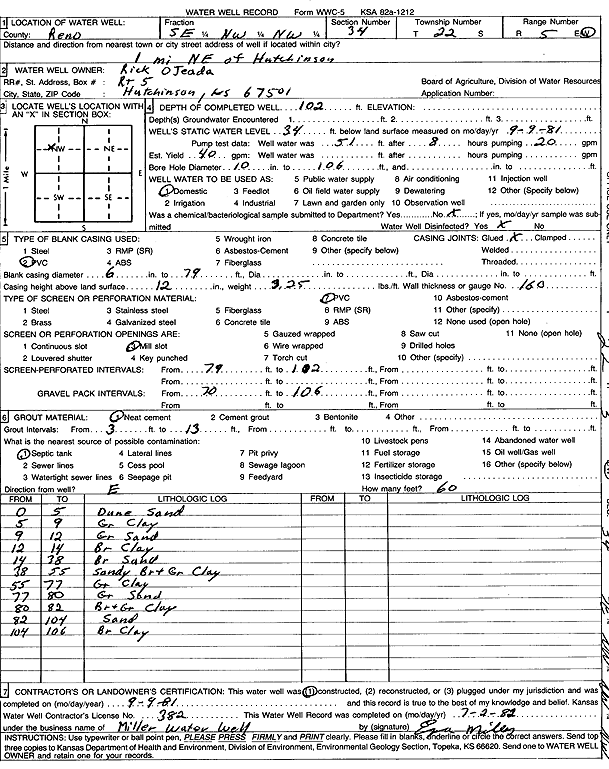 WATER WELL RECORD Form WWC-5 KSA 82a-1212
1 LOCATION OF WATER WELL: Fraction Section Number Township Number Range Number
County: Reno SE ¼ NW ¼ NW ¼ 34 T 22 S R 5 E(W)
Distance and direction from nearest town or city street address of well if located within city?
1 mi NE of Hutchinson
2 WATER WELL OWNER: Rick OJeada
RR#, St. Address, Box # : Rt 5 Board of Agriculture, Division of Water Resources
City, State, ZIP Code : Hutchinson, KS 67501 Application Number:
3 LOCATE WELL'S LOCATION WITH AN "X" IN SECTION BOX:
N
X NW NE
W E
SW SE
S
1 Mile
4 DEPTH OF COMPLETED WELL 102 ft. ELEVATION:
Depth(s) Groundwater Encountered 1. ft. 2. ft. 3. ft.
WELL'S STATIC WATER LEVEL 34 ft. below land surface measured on mo/day/yr 9-9-81
Pump test data: Well water was 51 ft. after 8 hours pumping 20 gpm
Est. Yield 40 gpm: Well water was ft. after hours pumping gpm
Bore Hole Diameter 10 in. to 106 ft., and in. to ft.
WELL WATER TO BE USED AS: 5 Public water supply 8 Air conditioning 11 Injection well
1 Domestic 3 Feedlot 6 Oil field water supply 9 Dewatering 12 Other (Specify below)
2 Irrigation 4 Industrial 7 Lawn and garden only 10 Observation well
Was a chemical/bacteriological sample submitted to Department? Yes No X; If yes, mo/day/yr sample was sub-
mitted Water Well Disinfected? Yes X No
5 TYPE OF BLANK CASING USED: 5 Wrought iron 8 Concrete tile CASING JOINTS: Glued X Clamped
1 Steel 3 RMP (SR) 6 Asbestos-Cement 9 Other (specify below) Welded
2 PVC 4 ABS 7 Fiberglass Threaded.
Blank casing diameter 6 in. to 79 ft., Dia in. to ft., Dia in. to ft.
Casing height above land surface 12 in., weight 3.25 lbs./ft. Wall thickness or gauge No. 160
TYPE OF SCREEN OR PERFORATION MATERIAL: 7 PVC 10 Asbestos-cement
1 Steel 3 Stainless steel 5 Fiberglass 8 RMP (SR) 11 Other (specify)
2 Brass 4 Galvanized steel 6 Concrete tile 9 ABS 12 None used (open hole)
SCREEN OR PERFORATION OPENINGS ARE: 5 Gauzed wrapped 8 Saw cut 11 None (open hole)
1 Continuous slot 3 Mill slot 6 Wire wrapped 9 Drilled holes
2 Louvered shutter 4 Key punched 7 Torch cut 10 Other (specify)
SCREEN-PERFORATED INTERVALS: From 79 ft. to 102 ft., From ft. to ft.
From ft. to ft., From ft. to ft.
GRAVEL PACK INTERVALS: From 70 ft. to 106 ft., From ft. to ft.
From ft. to ft., From ft. to ft.
6 GROUT MATERIAL: 1 Neat cement 2 Cement grout 3 Bentonite 4 Other
Grout Intervals: From 3 ft. to 13 ft., From ft. to ft., From ft. to ft.
What is the nearest source of possible contamination: 10 Livestock pens 14 Abandoned water well
1 Septic tank 4 Lateral lines 7 Pit privy 11 Fuel storage 15 Oil well/Gas well
2 Sewer lines 5 Cess pool 8 Sewage lagoon 12 Fertilizer storage 16 Other (specify below)
3 Watertight sewer lines 6 Seepage pit 9 Feedyard 13 Insecticide storage
Direction from well? E How many feet? 60
FROM TO LITHOLOGIC LOG FROM TO LITHOLOGIC LOG
0 5 Dune Sand
5 9 Gr Clay
9 12 Gr Sand
12 14 Br Clay
14 38 Br Sand
38 55 Sandy Br + Gr Clay
55 77 Gr Clay
77 80 Gr Sand
80 82 Br + Gr Clay
82 104 Sand
104 106 Br Clay
7 CONTRACTOR'S OR LANDOWNER'S CERTIFICATION: This water well was (1) constructed, (2) reconstructed, or (3) plugged under my jurisdiction and was
completed on (mo/day/year) 9-9-81 and this record is true to the best of my knowledge and belief. Kansas
Water Well Contractor's License No. 382 This Water Well Record was completed on (mo/day/yr) 7-2-82
under the business name of Miller Water Well by (signature)
INSTRUCTIONS: Use typewriter or ball point pen, PLEASE PRESS FIRMLY and PRINT clearly. Please fill in blanks, underline or circle the correct answers. Send top
three copies to Kansas Department of Health and Environment, Division of Environment, Environmental Geology Section, Topeka, KS 66620. Send one to WATER WELL
OWNER and retain one for your records.